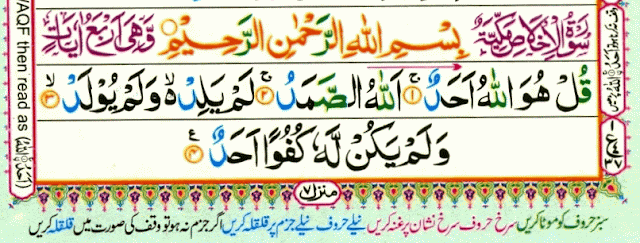 سُوْرَةُ الْاِخْلَاصِ مَكِّيَّةٌ بِسْمِ اللّٰهِ الرَّحْمٰنِ الرَّحِيْمِ وَّهِيَ اَرْبَعُ اٰيَاتٍ
قُلْ هُوَ اللّٰهُ اَحَدٌ ۚ ۱ اَللّٰهُ الصَّمَدُ ۚ ۲ لَمْ يَلِدْ ۙ وَلَمْ يُوْلَدْ ۙ ۳
وَلَمْ يَكُنْ لَّهٗ كُفُوًا اَحَدٌ ۴ ع
منزل ۷
سبز حروف کو موٹا کریں سرخ حروف سرخ نشان پر غنہ کریں نیلے حروف نیلے جزم پر قلقلہ کریں اگر جزم نہ ہو تو وقف کی صورت میں قلقلہ کریں
WAQF then read as